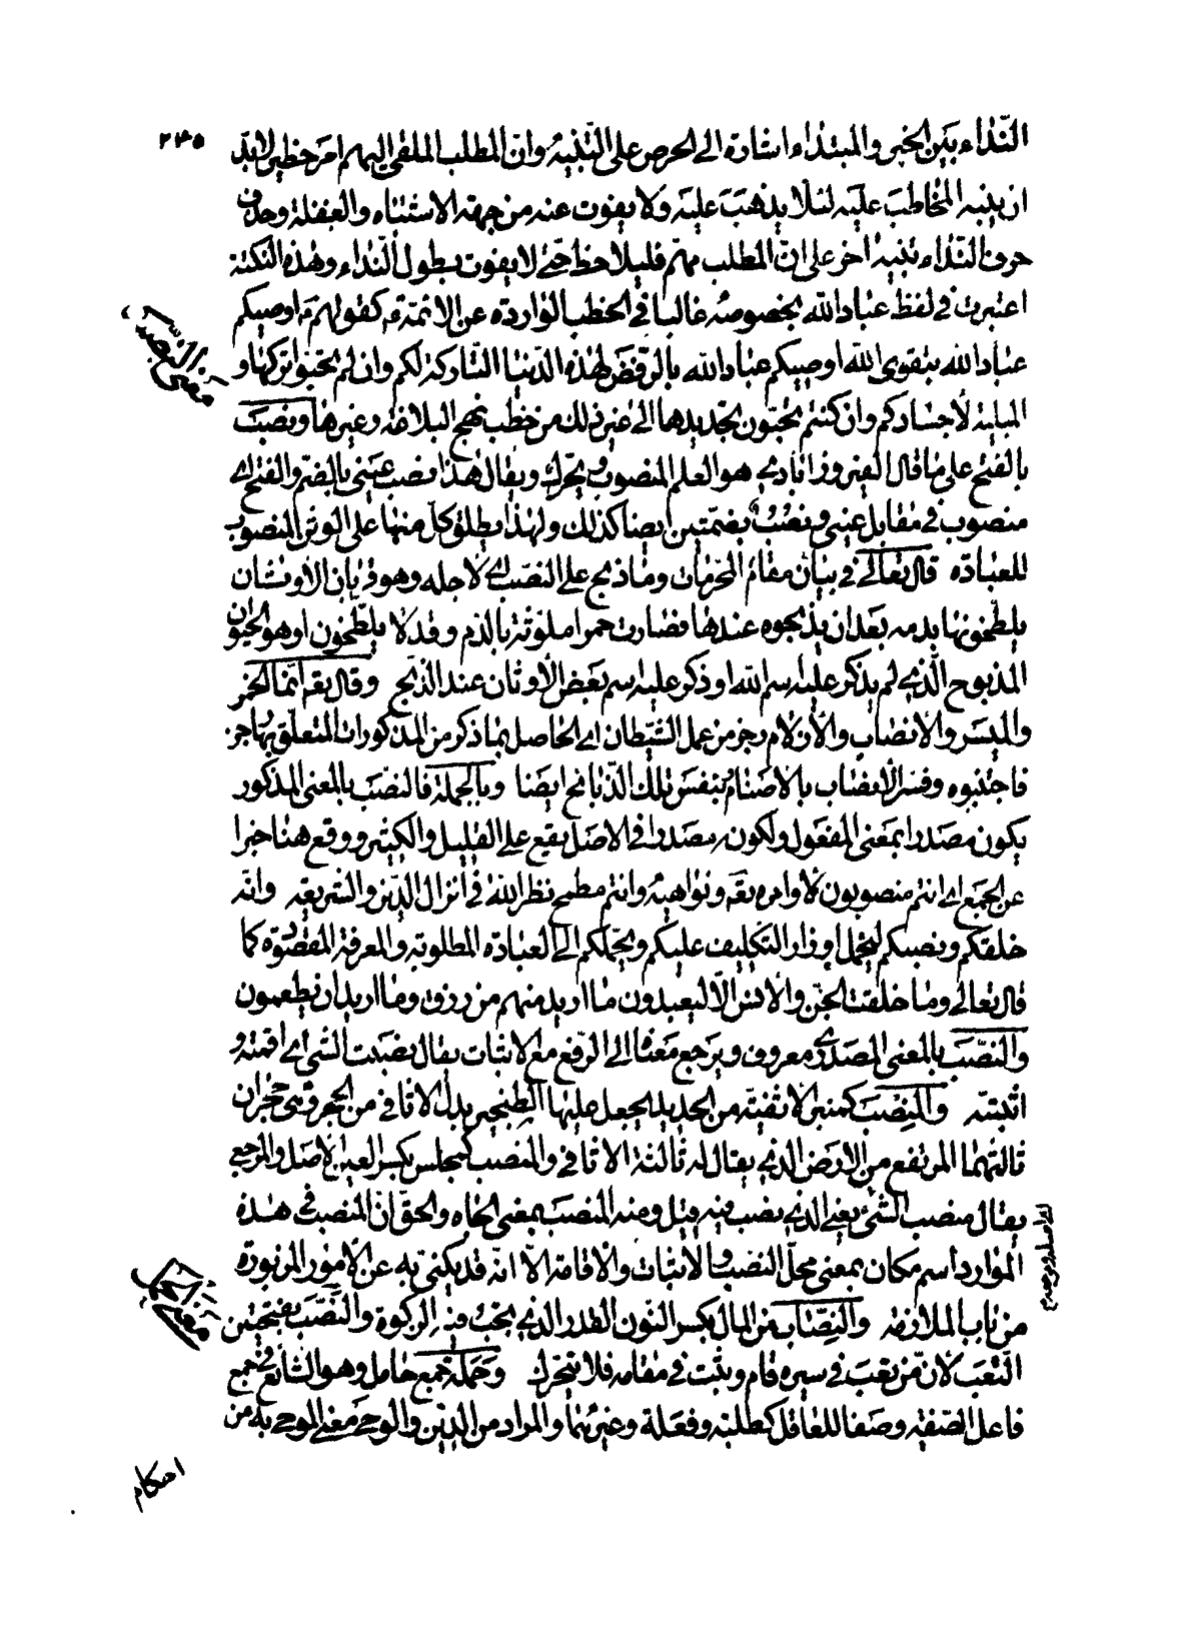 ٢٣٥
النّداء بين الخبر والمبتداء اشارة الى الحرص على التّنبيه وانّ المطلب الملقى اليهم امر خطير لابدّ
ان ينبه المخاطب عليه لئلا يذهب عليه ولا يفوت عنه من جهة الاشتباه والغفلة وحذف
حرف النّداء تنبيه آخر على انّ المطلب مهمّ فليلاحظ حتّى لا يفوت بطول النّداء وهذه النكتة
اعتبرت فى لفظ عباد الله بخصوصه غالبا فى الخطب الواردة عن الائمّة ع كقولهم ع اوصيكم
عباد الله بتقوى الله اوصيكم عباد الله بالرّفض لهذه الدّنيا التّاركة لكم وان لم تحبّوا تركها و
المبلية لأجسادكم وان كنتم تحبّون تجديدها الى غير ذلك من خطب نهج البلاغة وغيرها ونصب
معنى النّصب
بالفتح على ما قال الفيروزابادى هو العلم المنصوب ويحرّك ويقال هذا نصب عينى بالضمّ والفتح اى
منصوب فى مقابل عينى ونُصُب بضمّتين ايضا كذلك ولهذا يطلق كلّ منها على الوثن المنصوب
للعبادة قال تعالى فى بيان مقام المحرّمات وما ذبح على النصب اى لاجله وهو قربان الأوثان
يلطخونها بدمه بعد ان يذبحوه عندها فصارت حمرا ملوثة بالدّم وقد لا يلطّخون او هو الحيوان
المذبوح الّذى لم يذكر عليه اسم الله او ذكر عليه اسم بعض الأوثان عند الذّبح وقال تع انّما الخمر
والميسر والانصاب والأزلام رجز من عمل الشّيطان اى الحاصل بما ذكر من المذكورات المتعلّق بها جز
فاجتنبوه وفسّر الانصاب بالاصنام بنفس تلك الذّبائح ايضا وبالجملة فالنصب بالمعنى المذكور
يكون مصدرا بمعنى المفعول ولكونه مصدرا فى الاصل يقع على القليل والكثير ووقع هنا خبرا
عن الجمع اى انتم منصوبون لأوامره تع ونواهيه وانتم مطمح نظر الله فى انزال الدّين والشريعة وانّه
خلقكم ونصبكم ليحمل اوزار التّكليف عليكم ويحملكم الى العبادة المطلوبة والمعرفة المقصودة كما
قال تعالى وما خلقت الجنّ والأنس الّا ليعبدون ما اريد منهم من رزق وما اريد ان يطعمون
والنّصب بالمعنى المصدرى معروف ويرجع معناه الى الرّفع مع الاثبات يقال نصبت الشىء اى اقمته و
اثبتّه والمِنصَب كمنبر الاثفية من الحديد يجعل عليها الطِّنجير بدل الاثافى من الحجر وهى حجران
ثالثهما المرتفع من الارض الّذى يقال له ثالثة الاثافى والمنصب كمجلس بكسر العين الاصل والمرجع
يقال منصب الشّىء يعنى الّذى نصب فيه قيل ومنه المنصب بمعنى الجاه والحقّ انّ المنصب فى هذه
الموارد اسم مكان بمعنى محلّ النصب والأثبات والاقامة الّا انّه قد يكنّى به عن الأمور المزبورة
من باب الملازمة والنِّصاب من المال بكسر النّون القدر الّذى يجب فيه الزكوة والنَّصَب بفتحتين
معنى الحمل
التّعب لأنّ من تعب فى سيره قام وثبت فى مقامه فلا يتحرّك وحملة جمع حامل وهو الشّائع فى جمع
فاعل الصّفة وصفا للعاقل كطلبة وفعلة وغيرهما والمراد من الدّين والوحى معنى الموحى به من
احكام